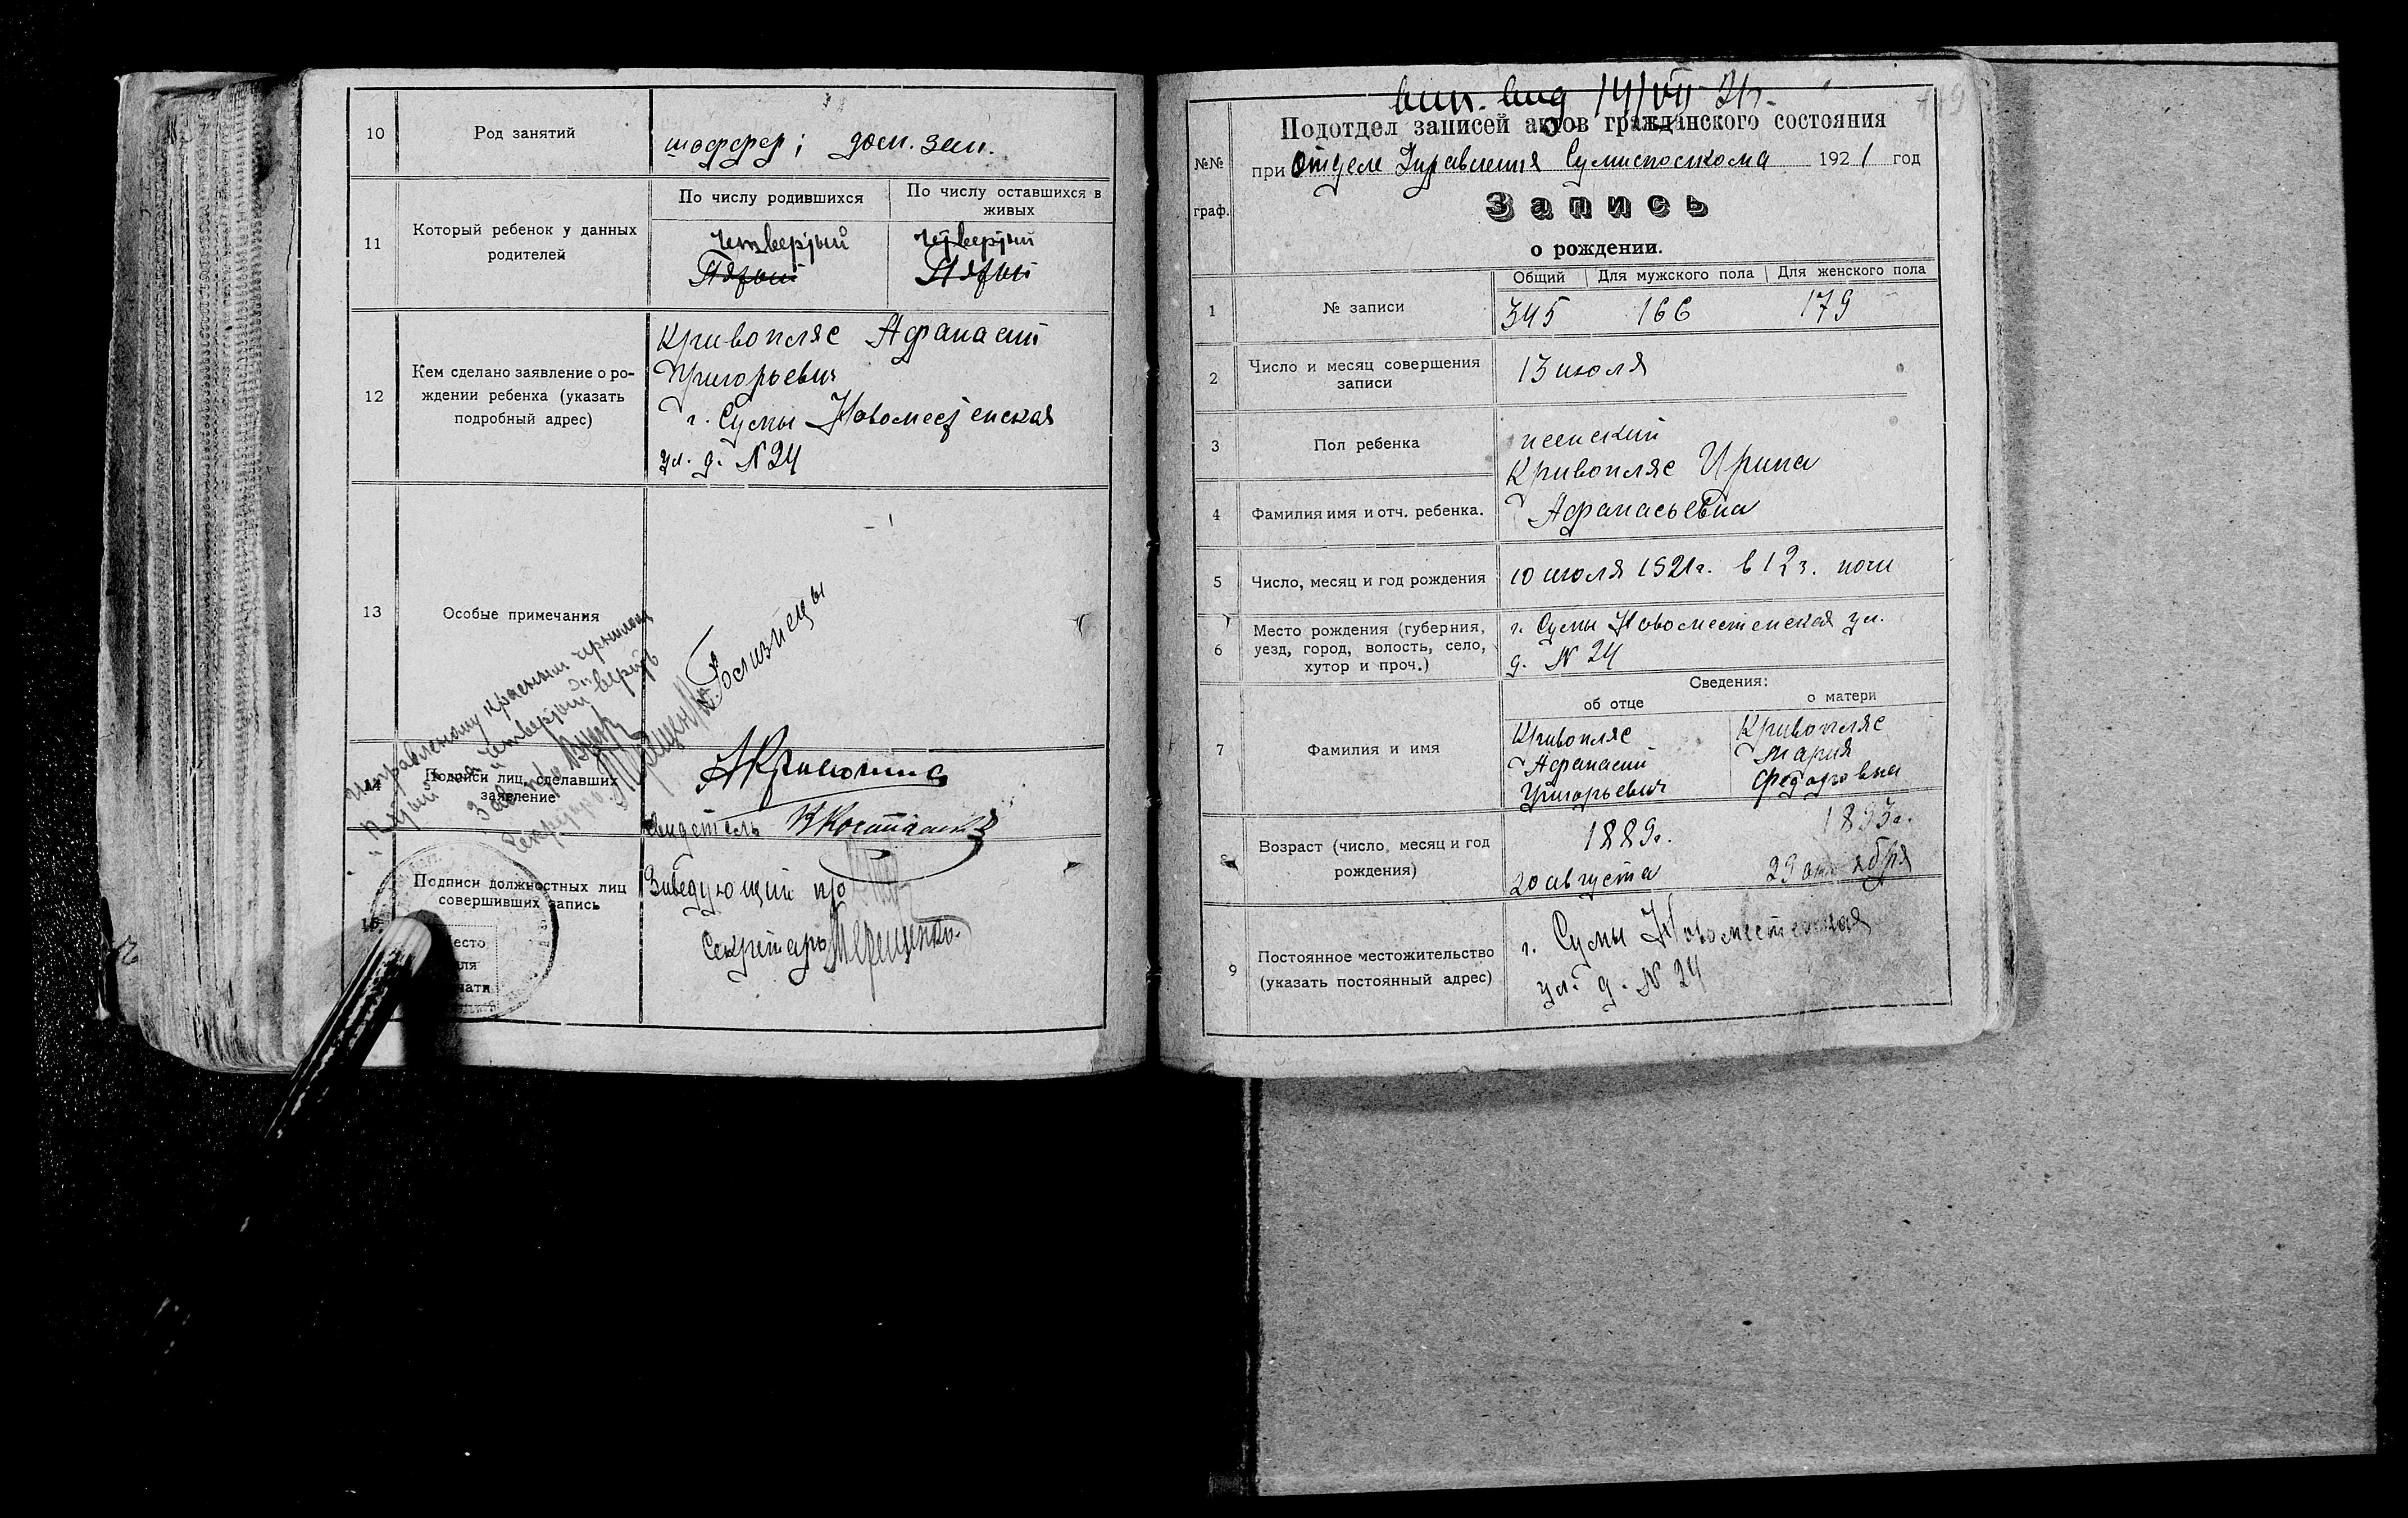 10
Род занятий
шоффер; дом. зан.
11
Который ребенок у данных
родителей
По числу родившихся
По числу оставшихся в
живых
четвертый
четвертый
Пятый
Пятый
12
Кем сделано заявление о ро-
ждении ребенка (указать
подробный адрес)
Кривопляс Афанасий
Григорьевич
г. Сумы Новоместенская
ул. д. № 24
13
Особые примечания
Исправленому красными чернилами
"Пятый" на "четвертый" верить
Зав. п/о
Секретарь Терещенко
Подписи лиц, сделавших
заявление
свидетель
Подписи должностных лиц
совершивших запись
Заведующий п/о
Секретарь Терещенко
вид 14/VII 21г.
Подотдел записей актов гражданского состояния
№№
граф.
при Отделе Управления 1921 год
Запись
о рождении.
Общий Для мужского пола Для женского пола
1
№ записи
345 166 179
2
Число и месяц совершения
записи
13 июля
3
Пол ребенка
женский
4
Фамилия имя и отч. ребенка.
Кривопляс Ирина
Афанасьевна
5
Число, месяц и год рождения
10 июля 1921г. в 12 ч. ночи
6
Место рождения (губерния,
уезд, город, волость, село,
хутор и проч.)
г. Сумы Новоместенская ул.
д. № 24
Сведения:
об отце
о матери
7
Фамилия и имя
Кривопляс
Афанасий
Григорьевич
Кривопляс
Мария
Федоровна
8
Возраст (число, месяц и год
рождения)
1889г.
20 августа
1893г.
9
Постоянное местожительство
(указать постоянный адрес)
г. Сумы Новоместенская
ул. д. № 24